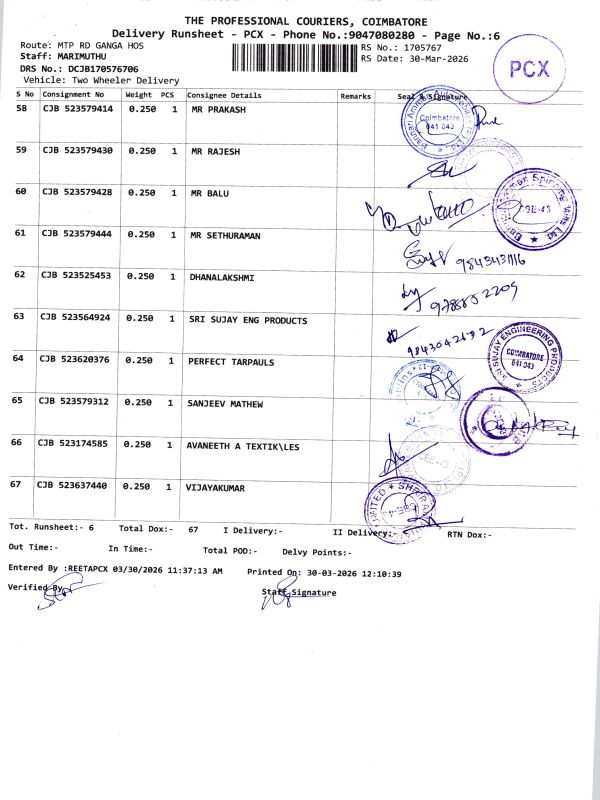 THE PROFESSIONAL COURIERS, COIMBATORE
Delivery Runsheet - PCX - Phone No.:9047080280 - Page No.:6
Route: MTP RD GANGA HOS
RS No.: 1705767
Staff: MARIMUTHU
RS Date: 30-Mar-2026
DRS No.: DCJB170576706
Vehicle: Two Wheeler Delivery
PCX
S No Consignment No Weight PCS Consignee Details Remarks Seal & Signature
58 CJB 523579414 0.250 1 MR PRAKASH
Coimbatore
641 043
59 CJB 523579430 0.250 1 MR RAJESH
60 CJB 523579428 0.250 1 MR BALU
61 CJB 523579444 0.250 1 MR SETHURAMAN
9843431116
62 CJB 523525453 0.250 1 DHANALAKSHMI
63 CJB 523564924 0.250 1 SRI SUJAY ENG PRODUCTS
SRI SUJAY ENGINEERING PRODUCTS
COIMBATORE
641 043
64 CJB 523620376 0.250 1 PERFECT TARPAULS
65 CJB 523579312 0.250 1 SANJEEV MATHEW
66 CJB 523174585 0.250 1 AVANEETH A TEXTIK\LES
67 CJB 523637440 0.250 1 VIJAYAKUMAR
Tot. Runsheet:- 6 Total Dox:- 67 I Delivery:- II Delivery:- RTN Dox:-
Out Time:- In Time:- Total POD:- Delvy Points:-
Entered By :REETAPCX 03/30/2026 11:37:13 AM Printed On: 30-03-2026 12:10:39
Verified By
Staff Signature